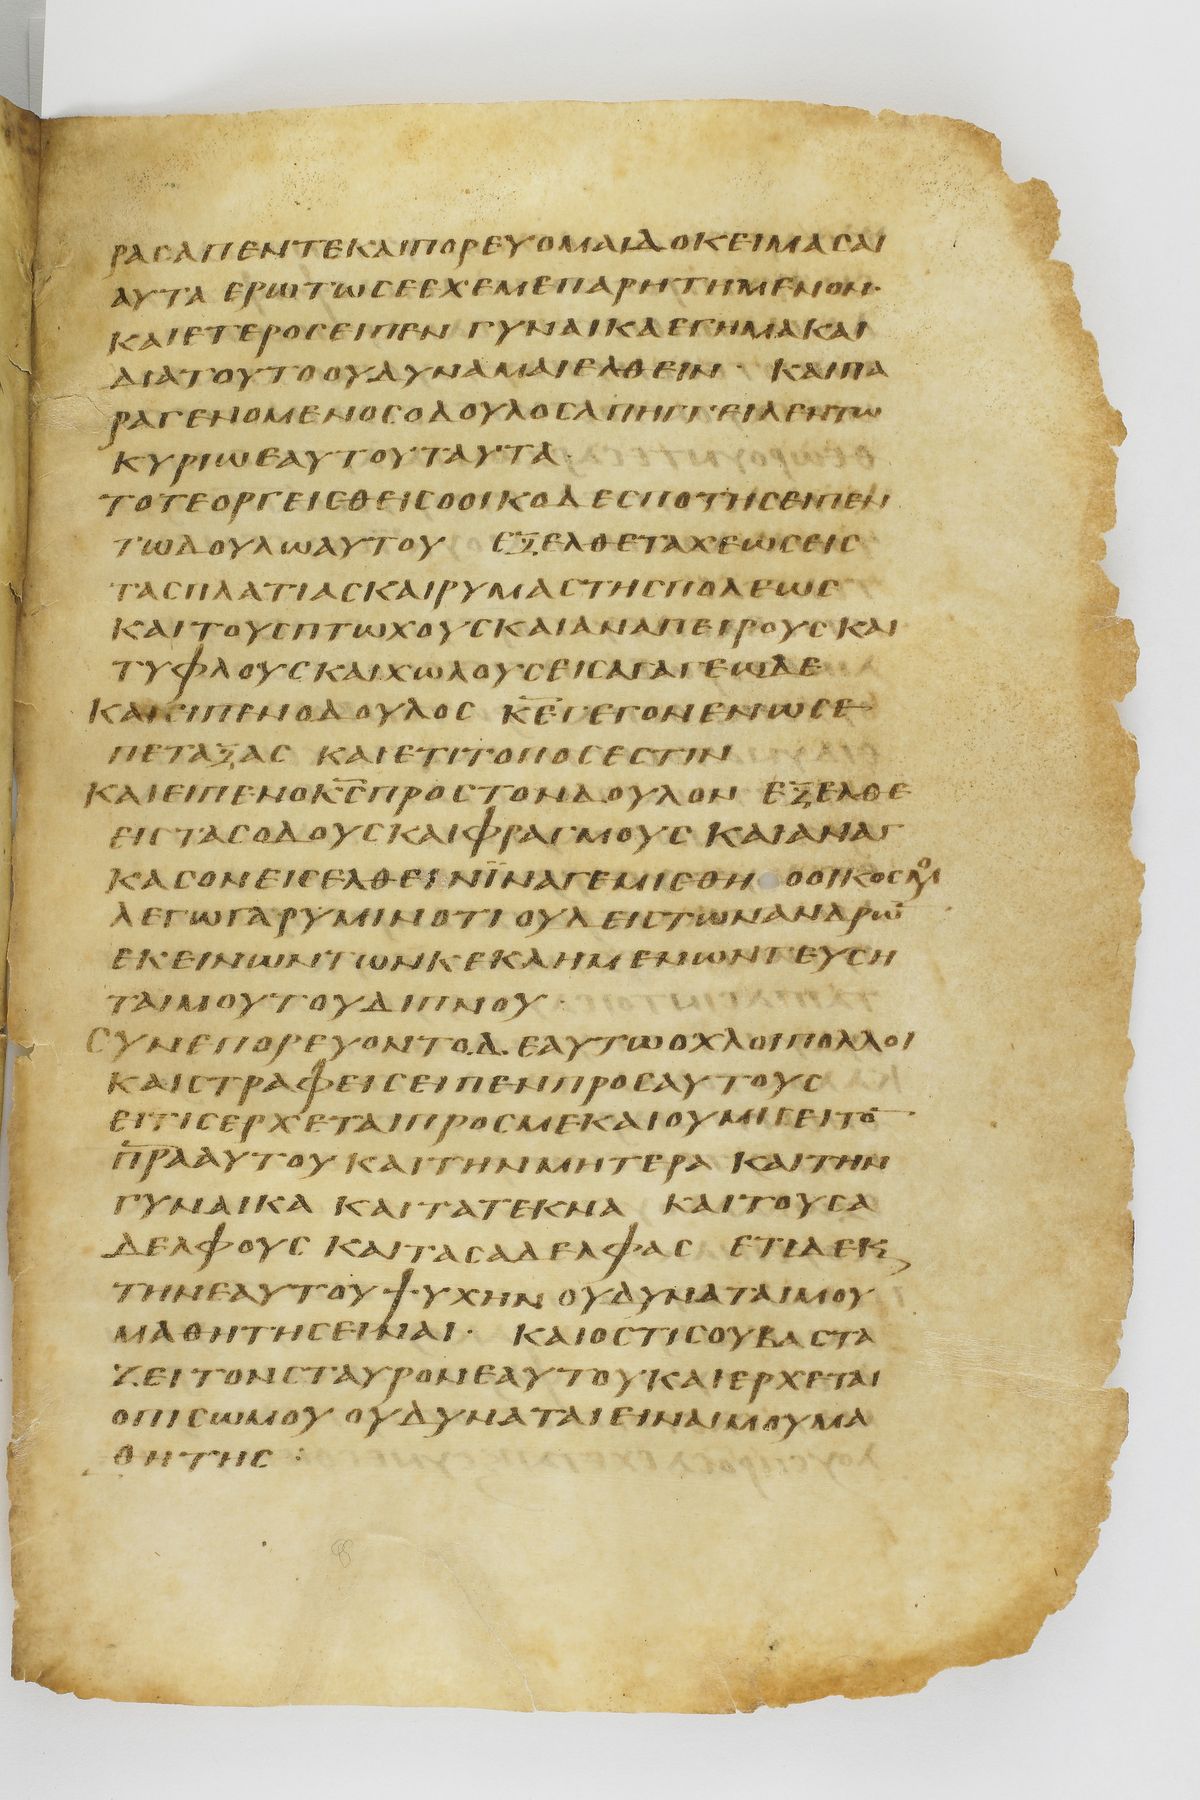 ΡΑϹΑΠΕΝΤΕΚΑΙΠΟΡΕΥΟΜΑΙΔΟΚΕΙΜΑϹΑΙ
ΑΥΤΑ ΕΡΩΤΩϹΕΕΧΕΜΕΠΑΡΗΤΗΜΕΝΟΝ·
ΚΑΙΕΤΕΡΟϹΕΙΠΕΝ ΓΥΝΑΙΚΑΕΓΗΜΑΚΑΙ
ΔΙΑΤΟΥΤΟΟΥΔΥΝΑΜΑΙΕΛΘΕΙΝ · ΚΑΙΠΑ
ΡΑΓΕΝΟΜΕΝΟϹΟΔΟΥΛΟϹΑΠΗΓΓΕΙΛΕΝΤΩ
ΚΥΡΙΩΕΑΥΤΟΥΤΑΥΤΑ·
ΤΟΤΕΟΡΓΕΙϹΘΕΙϹΟΟΙΚΟΔΕϹΠΟΤΗϹΕΙΠΕΝ
ΤΩΔΟΥΛΩΑΥΤΟΥ ΕΞΕΛΘΕΤΑΧΕΩϹΕΙϹ
ΤΑϹΠΛΑΤΙΑϹΚΑΙΡΥΜΑϹΤΗϹΠΟΛΕΩϹ
ΚΑΙΤΟΥϹΠΤΩΧΟΥϹΚΑΙΑΝΑΠΕΙΡΟΥϹΚΑΙ
ΤΥΦΛΟΥϹΚΑΙΧΩΛΟΥϹΕΙϹΑΓΑΓΕΩΔΕ
ΚΑΙΕΙΠΕΝΟΔΟΥΛΟϹ Κ̅Ε̅·ΓΕΓΟΝΕΝΩϹΕ
ΠΕΤΑΞΑϹ ΚΑΙΕΤΙΤΟΠΟϹΕϹΤΙΝ
ΚΑΙΕΙΠΕΝΟΚ̅Ϲ̅ΠΡΟϹΤΟΝΔΟΥΛΟΝ ΕΞΕΛΘΕ
ΕΙϹΤΑϹΟΔΟΥϹΚΑΙΦΡΑΓΜΟΥϹ ΚΑΙΑΝΑΓ
ΚΑϹΟΝΕΙϹΕΛΘΕΙΝΪΝΑΓΕΜΙϹΘΗ ΟΟΙΚΟϹΜΟΥ
ΛΕΓΩΓΑΡΥΜΙΝΟΤΙΟΥΔΕΙϹΤΩΝΑΝΔΡΩ̅
ΕΚΕΙΝΩΝΤΩΝΚΕΚΛΗΜΕΝΩΝΓΕΥϹΗ
ΤΑΙΜΟΥΤΟΥΔΙΠΝΟΥ·
ϹΥΝΕΠΟΡΕΥΟΝΤΟ.Δ.ΕΑΥΤΩΟΧΛΟΙΠΟΛΛΟΙ
ΚΑΙϹΤΡΑΦΕΙϹΕΙΠΕΝΠΡΟϹΑΥΤΟΥϹ
ΕΙΤΙϹΕΡΧΕΤΑΙΠΡΟϹΜΕΚΑΙΟΥΜΙϹΕΙΤΟ̅
Π̅Ρ̅Α̅ΑΥΤΟΥ ΚΑΙΤΗΝΜΗΤΕΡΑ ΚΑΙΤΗΝ
ΓΥΝΑΙΚΑ ΚΑΙΤΑΤΕΚΝΑ ΚΑΙΤΟΥϹΑ
ΔΕΛΦΟΥϹ ΚΑΙΤΑϹΑΔΕΛΦΑϹ ΕΤΙΔΕΚ
ΤΗΝΕΑΥΤΟΥΨΥΧΗΝ ΟΥΔΥΝΑΤΑΙΜΟΥ
ΜΑΘΗΤΗϹΕΙΝΑΙ· ΚΑΙΟϹΤΙϹΟΥΒΑϹΤΑ
ΖΕΙΤΟΝϹΤΑΥΡΟΝΕΑΥΤΟΥΚΑΙΕΡΧΕΤΑΙ
ΟΠΙϹΩΜΟΥ ΟΥΔΥΝΑΤΑΙΕΙΝΑΙΜΟΥΜΑ
ΘΗΤΗϹ :